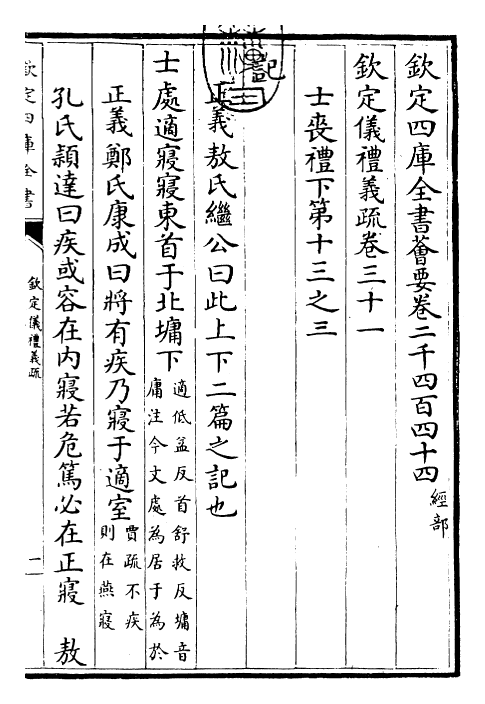 欽定四庫全書薈要卷二千四百四十四經部
欽定儀禮義疏卷三十一
士喪禮下第十三之三
記
正義敖氏繼公曰此上下二篇之記也
士處適寢寢東首于北墉下適低益反首舒救反墉音
庸注今文處為居于為於
正義鄭氏康成曰將有疾乃寢于適室賈疏不疾
則在燕寢
孔氏穎達曰疾或容在內寢若危篤必在正寢 敖
欽定四庫全書
欽定儀禮義疏
一